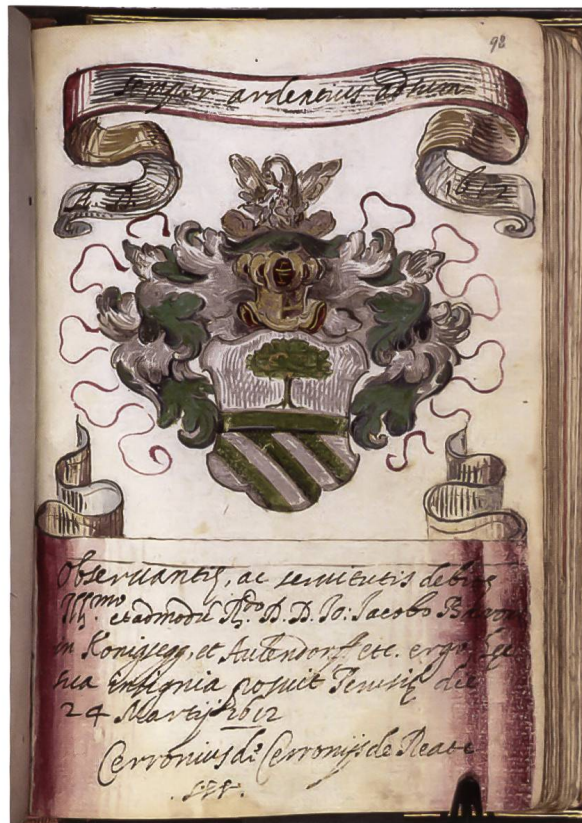 98
semper ardentius
A. D. 1612
Obseruantię, ac seruitutis debitę
Ill.mo et admodũ R.do D. D. Io: Iacobo
in Konigsegg, et Aulendorff etc. ergo
sua insignia posuit Perusię die
24 Martij 1612
Cerronius de Cerronijs de Reate